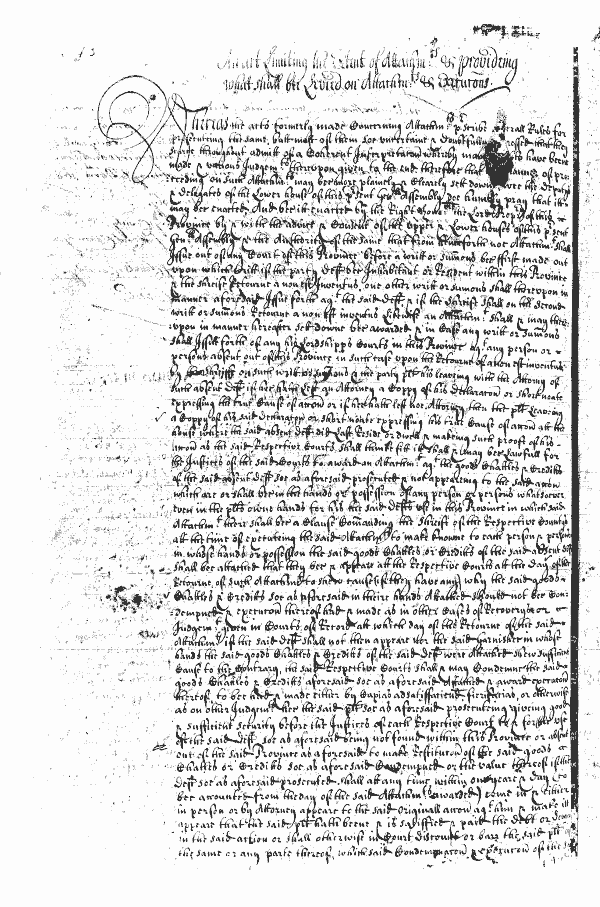 An Act Limiting the Extent of Attachmts & providing
what shall bee Levied on Attachmts & Executons.
Whereas the acts formerly made Concerning Attachmts prscribe severall Rules for
prosecuting the same, but most of them soe uncertaine & Doubtfully
throughout admitt of a Coherent Interpretation whereby may to have beene
made & various Judgmts thereupon given to the end therefore that of pro
ceeding on such Attachmts may bee more plainely & Clearly sett downe wee the Deputys
& Delegates of the Lower house of this prsent Genll Assembly doe humbly pray that itt
may bee enacted, And bee itt enacted by the Right Honble the Lord Propry of this
Province by & with the advice & Consent of the upper & Lower houses of this prsent
Genll Assembly & the Authority of the same that from henceforth noe Attachmt shall
Issue out of any Court of this Province before a writt or sumons bee first made out
upon which writt if the party Defft bee Inhabitant or Resident within this Province
& the Sheriffe Retourne a non est Inventus, one other writt or sumons shall thereupon in
manner aforesaid Issue forth agt the said Defft & if the Sheriffe shall on the second
writt or sumons Retourne a non est inventus Likewise an Attachmt shall & may then
upon in manner hereafter sett downe bee awarded, & in Case any writt or Sumons
shall Issue forth of any his Lordshipps Courts in this Province agt any person or
persons absent out of this Province in such case upon the Retourne of a non est inventus
by the Sheriffe on such writt or Sumons & the party plt his leaving with the Attorny of
such absent Defft if hee hath Left an Attorny a Coppy of his Declaraton or short note
expressing the true Cause of acton or if hee hath left noe Attorny then the plt leaving
a Coppy of his said Declaraton or short note expressing his true Cause of acton att the
house where the said absent Defft did Last Reside or dwell & makeing such proofe of his
acton as the said Respective Courts shall thinke fitt itt shall & may bee Lawfull for
the Justices of the said Courts to award an Attachmt agt the goods Chattles & Creditts
of the said absent Defft soe as aforesaid prosecuted & not appearing to the said acton
which are or shall bee in the hands or possession of any person or persons whatsoever
even in the plts owne hands for his the said Deffts use in this Province in which said
Attachmt there shall bee a Clause Comanding the Sheriff of the Respective Countys
att the time of executing the said Attachmt to make knowne to each person & persons
in whose hands or possession the said goods Chattles or Creditts of the said absent Defft
shall bee attached that they bee & appeare att the Respective Courts att the day of the
Retourne of such Attachmt to shew cause (if they have any) why the said goods
Chattles & Creditts soe as aforesaid in their hands Attached should not bee Con
demned & executon thereof had & made as in other Cases of Recoverys or
Judgmts given in Courts of Record att which day of the Retourne of the said
Attachmt if the said Defft shall not then appeare nor the said Garnishee in whose
hands the said goods Chattles & Creditts of the said Defft were Attached shew sufficient
Cause to the Contrary, the said Respective Courts shall & may Condemne the said
goods Chattles & Creditts aforesaid soe as aforesaid Attached & award executon
thereof to bee had & made either by Capias ad satisfaciend, fieri facias, or otherwise
as on other Judgmts hee the said plt soe as aforesaid prosecuteing giveing good
& sufficient security before the Justices of each Respective Court to & for the use
of the said Defft soe as aforesaid being not found within this Province or absent
out of the said Province as aforesaid to make Restituton of the said goods
Chattles or Creditts soe as aforesaid Condemned or the value thereof if the
Defft soe as aforesaid prosecuted shall att any time within one yeare & a Day to
bee accounted from the day of the said Attachmt awarded come in & either
in person or by Attorney appeare to the said Originall acton agt him & make itt
appeare that the said plt hath beene & is satisffied & paid the debt or
in the said action or shall otherwise in Court discount or barr the said plt
the same or any parte thereof, which said Condemnacon & executon of the